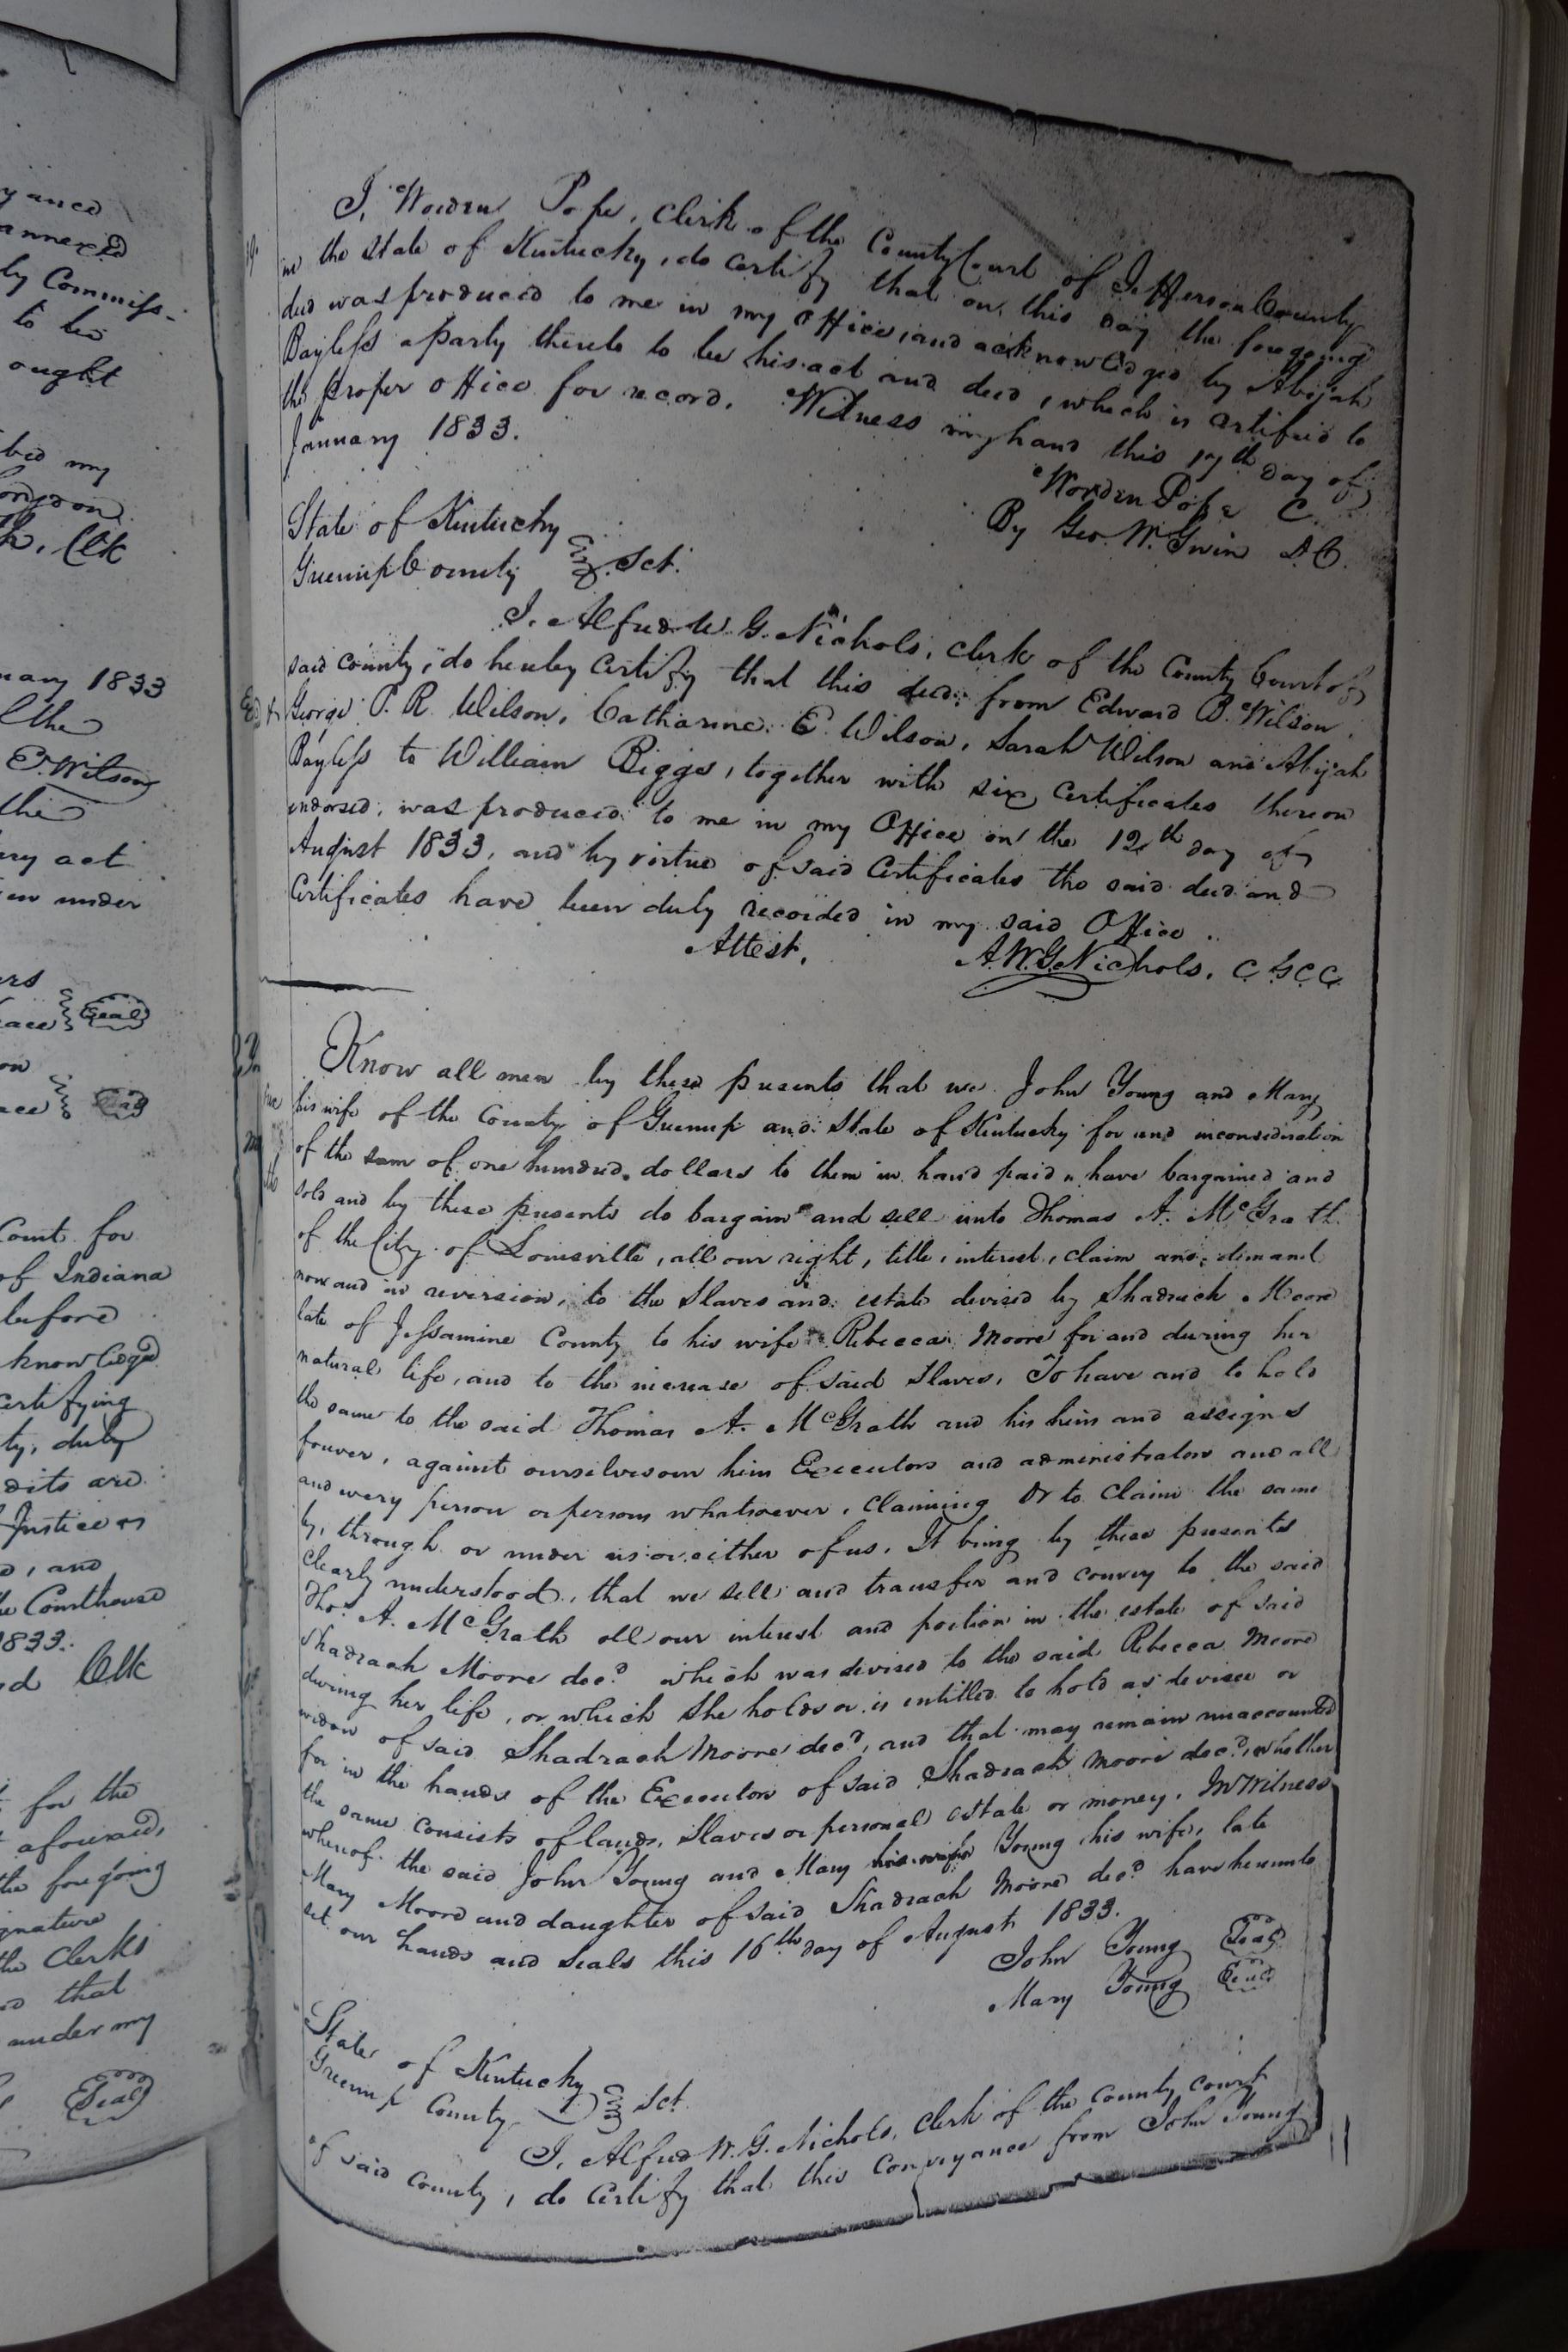 yance
annexed
ly Commiss-
to be
ought
bed my
Clk
uary 1833
the
E. Wilson
the
ery act
en under
Seal
Court for
of Indiana
before
knowledged
certifying
ty, duly
dits are
Justice
d, and
the Courthouse
1833.
Clk
for the
aforesaid,
the foregoing
ignature
the Clerks
that
under my
Seal
I, Worden Pope, Clerk of the County Court of Jefferson County
in the state of Kentucky, do certify that on this day the foregoing
deed was produced to me in my Office, and acknowledged by Abijah
Bayless a party thereto to be his act and deed, which is certified to
the proper office for record. Witness my hand this 17th day of
January 1833.
Worden Pope C.
By Geo. W. Gwin D.C.
State of Kentucky
Greenup County Sct.
I, Alfred W. G. Nichols, clerk of the County Court of
said county, do hereby certify that this deed from Edward B. Wilson,
George P. R. Wilson, Catharine E. Wilson, Sarah Wilson and Abijah
Bayless to William Biggs, together with six certificates thereon
endorsed, was produced to me in my Office on the 12th day of
August 1833, and by virtue of said Certificates the said deed and
Certificates have been duly recorded in my said Office.
Attest, A. W. G. Nichols, C G C C
Know all men by these presents that we John Young and Mary
his wife of the County of Greenup and State of Kentucky for and inconsideration
of the sum of one hundred dollars to them in hand paid, have bargained and
sold and by these presents do bargain and sell unto Thomas A. McGrath
of the City of Louisville, all our right, title, interest, claim and demand
now and in reversion, to the Slaves and estate devised by Shadrach Moore
late of Jessamine County to his wife Rebecca Moore for and during her
natural life, and to the increase of said Slaves. To have and to hold
the same to the said Thomas A. McGrath and his heirs and assigns
forever, against ourselves our heirs Executors and administrators and all
and every person or persons whatsoever, claiming or to claim the same
by, through or under us or either of us. It being by these presents
clearly understood, that we sell and transfer and convey to the said
Thos. A. McGrath all our interest and portion in the estate of said
Shadrach Moore decd. which was devised to the said Rebecca Moore
during her life, or which she holds or is entitled to hold as devisee or
widow of said Shadrach Moore decd, and that may remain unaccounted
for in the hands of the Executors of said Shadrach Moore decd, whether
the same consists of lands, Slaves or personal estate or money. In Witness
whereof the said John Young and Mary his wife Young his wife, late
Mary Moore and daughter of said Shadrach Moore decd have hereunto
set our hands and seals this 16th day of August 1833.
John Young Seal
Mary Young Seal
State of Kentucky
Greenup County Sct.
I, Alfred W. G. Nichols, Clerk of the county court
of said county, do certify that this conveyance from John Young